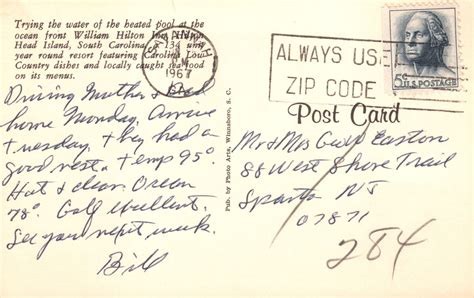 Trying the water of the heated pool at the
ocean front William Hilton Inn, Hilton
Head Island, South Carolina, a 134 unit
year round resort featuring Carolina Low
Country dishes and locally caught seafood
on its menus.
SAVANNAH
1967
ALWAYS USE
ZIP CODE
5¢ U.S. POSTAGE
Post Card
Driving Mother & Dad
home Monday, Arrive
Tuesday, They had a
good rest. Temp 95°
Hot & clear. Ocean
78°. Golf excellent.
See you next week.
Bill
Pub. by Photo Arts, Winnsboro, S. C.
Mr & Mrs Easton
88 West Shore Trail
Sparta NJ
07871
284